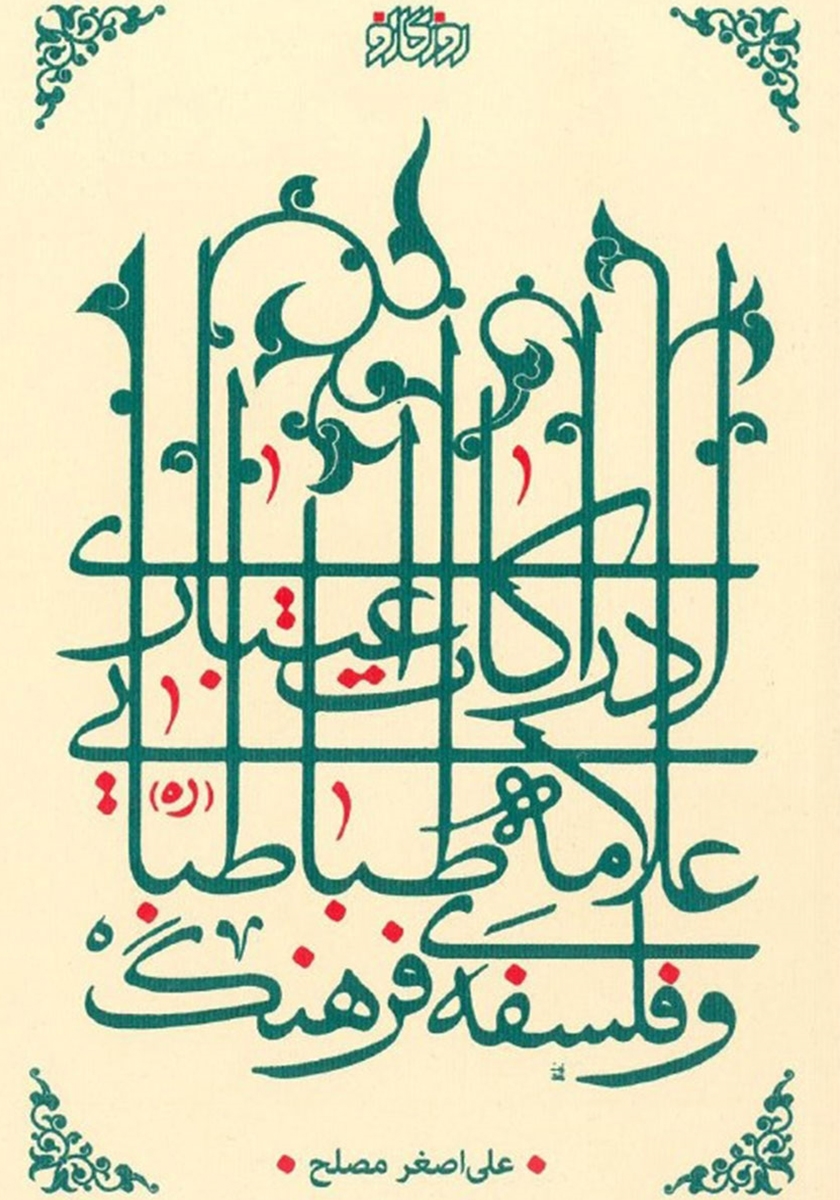 روزگار نو
ادراکات اعتباری
علامه طباطبایی (ره)
و فلسفه فرهنگ
علی‌اصغر مصلح